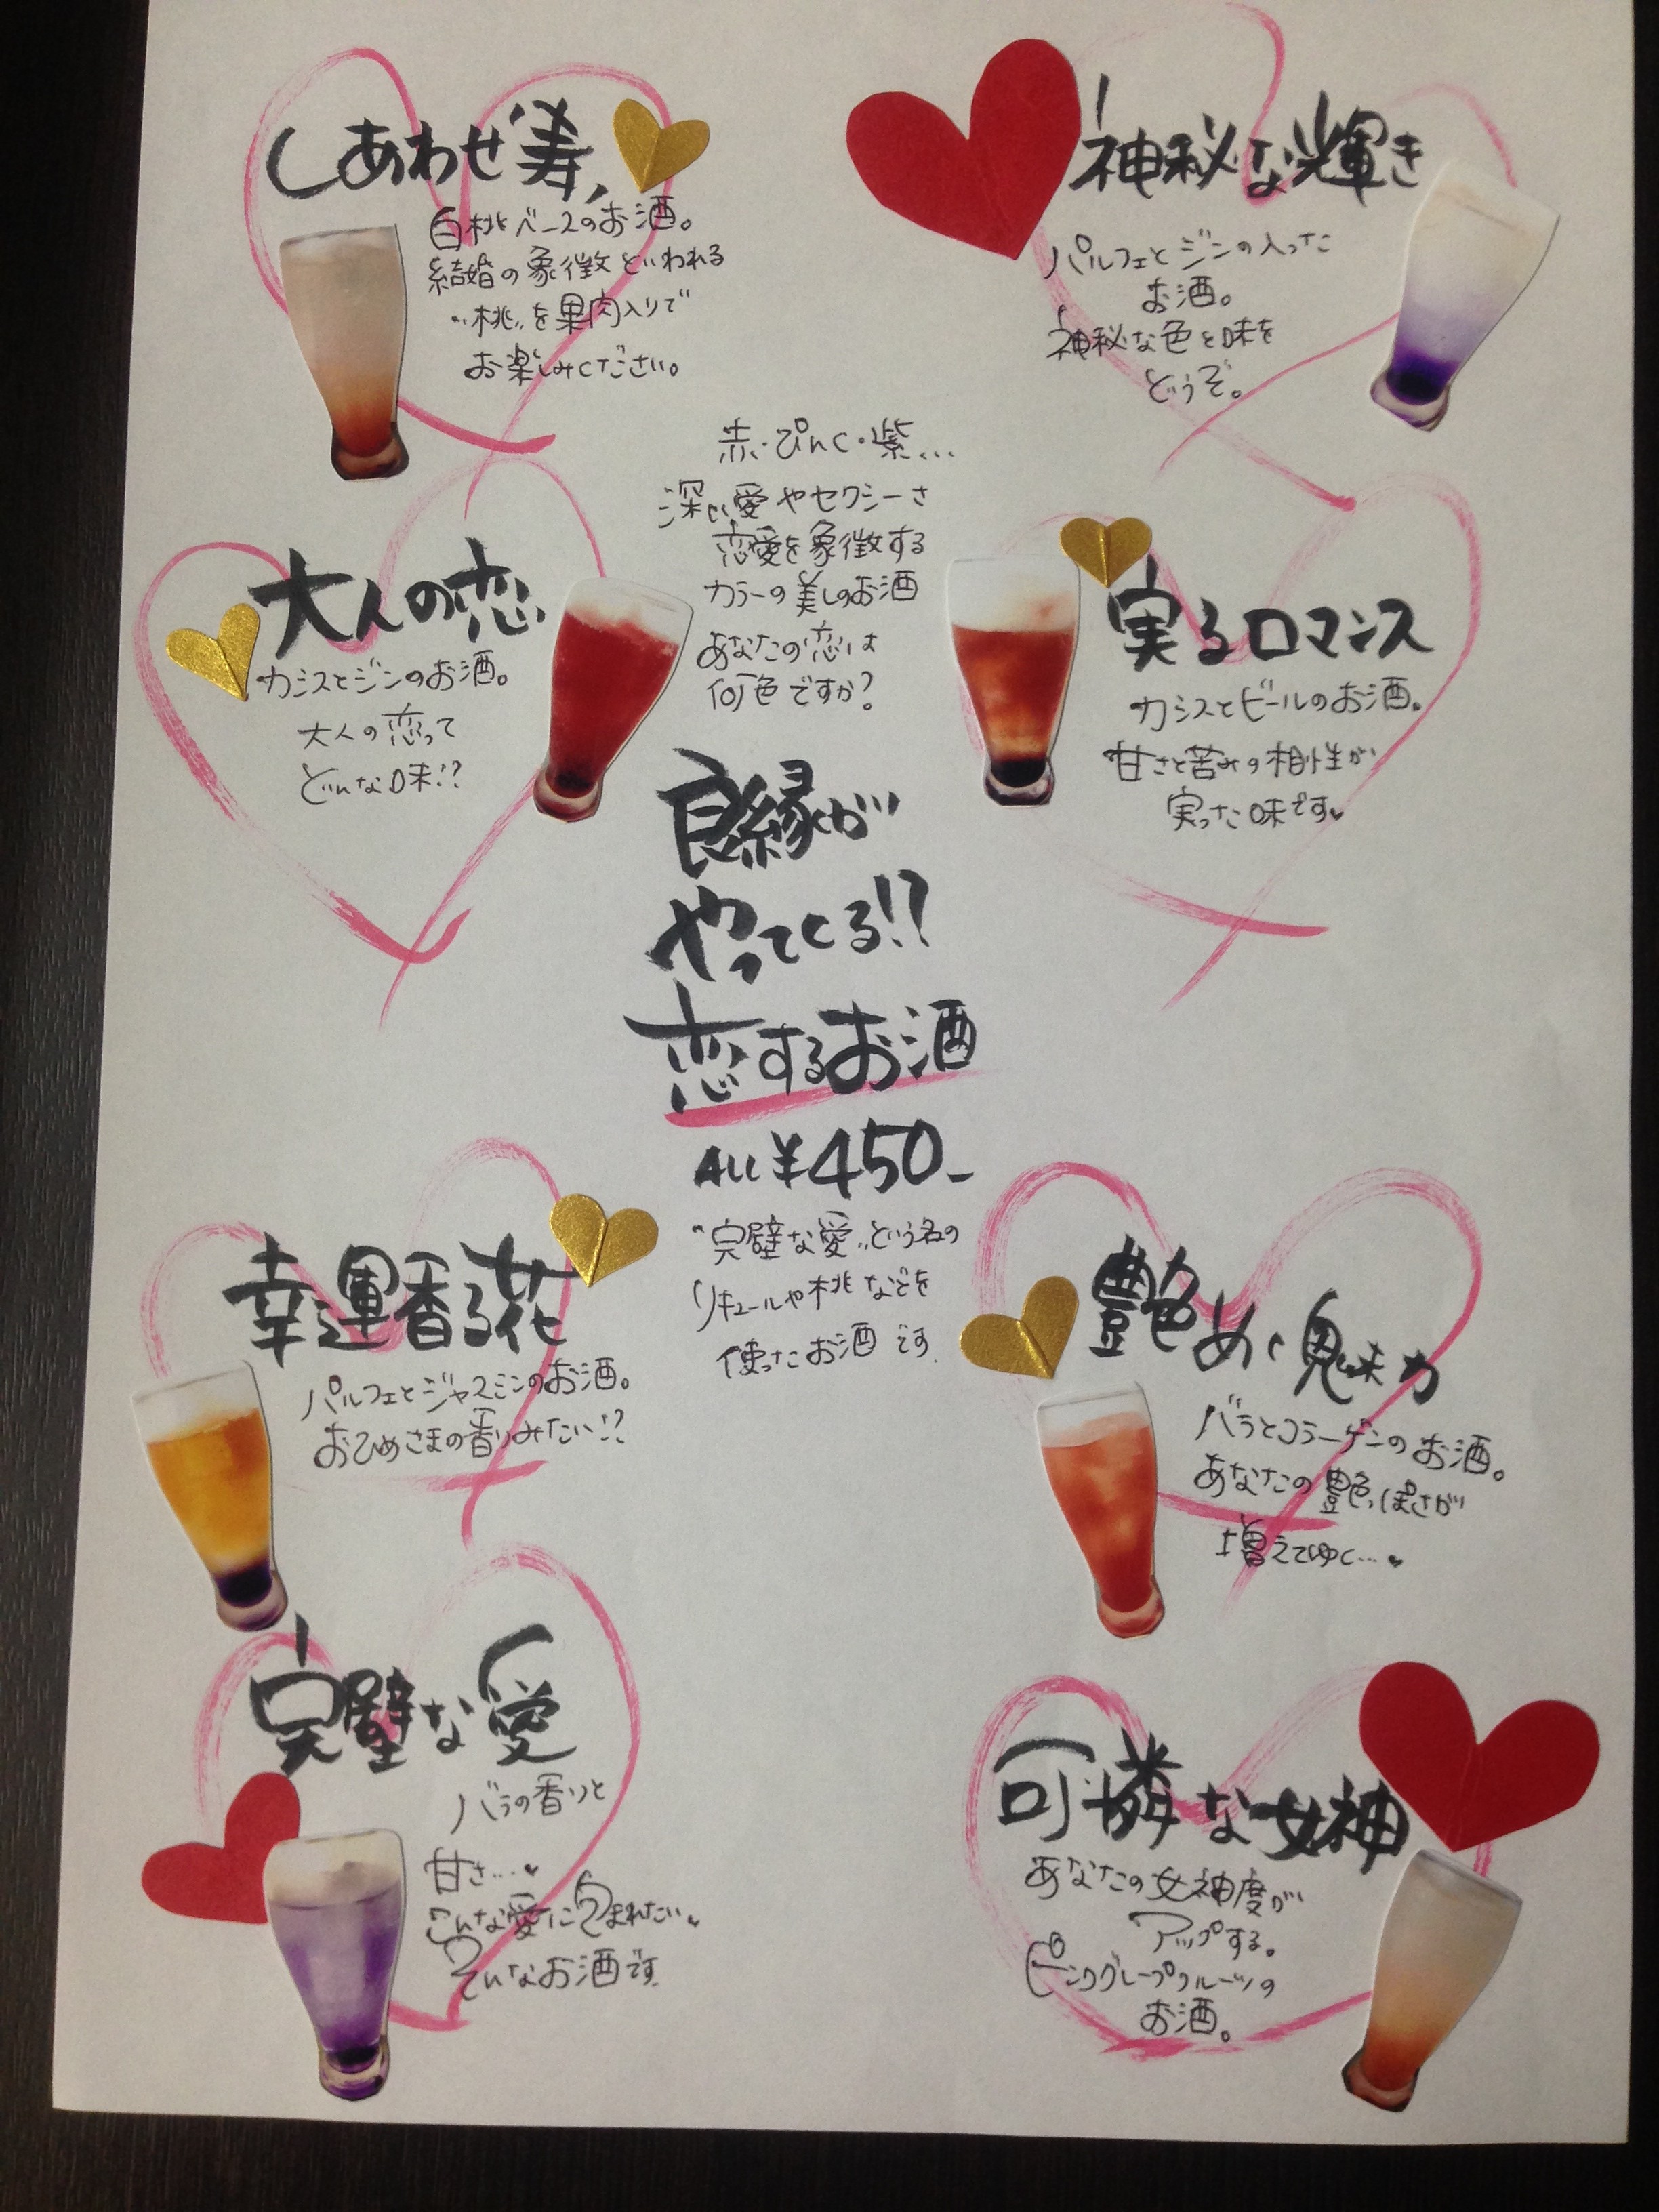 しあわせ"寿"
白桃ベースのお酒。
結婚の象徴といわれる
"桃"を果肉入りで
お楽しみください。
神秘な輝き
パルフェとジンの入った
お酒。
神秘な色と味を
どうぞ。
赤・ぴんく・紫...
深い愛やセクシーさ
恋愛を象徴する
カラーの美しいお酒
あなたの恋は
何色ですか?
大人の恋
カシスとジンのお酒。
大人の恋って
どんな味!?
実るロマンス
カシスとビールのお酒。
甘さと苦みの相性が
実った味です♥
良縁が
やってくる!?
恋するお酒
ALL ¥450-
"完璧な愛"という名の
リキュールや桃などを
使ったお酒です
幸運香る花
パルフェとジャスミンのお酒。
おひめさまの香りみたい!?
艶めく魅力
バラとコラーゲンのお酒。
あなたの艶っぽさが
増えてゆく…♥
完璧な愛
バラの香りと
甘さ…♥
こんな愛に包まれたい♥
そんなお酒です
可憐な女神
あなたの女神度が
アップする。
ピンクグレープフルーツの
お酒。